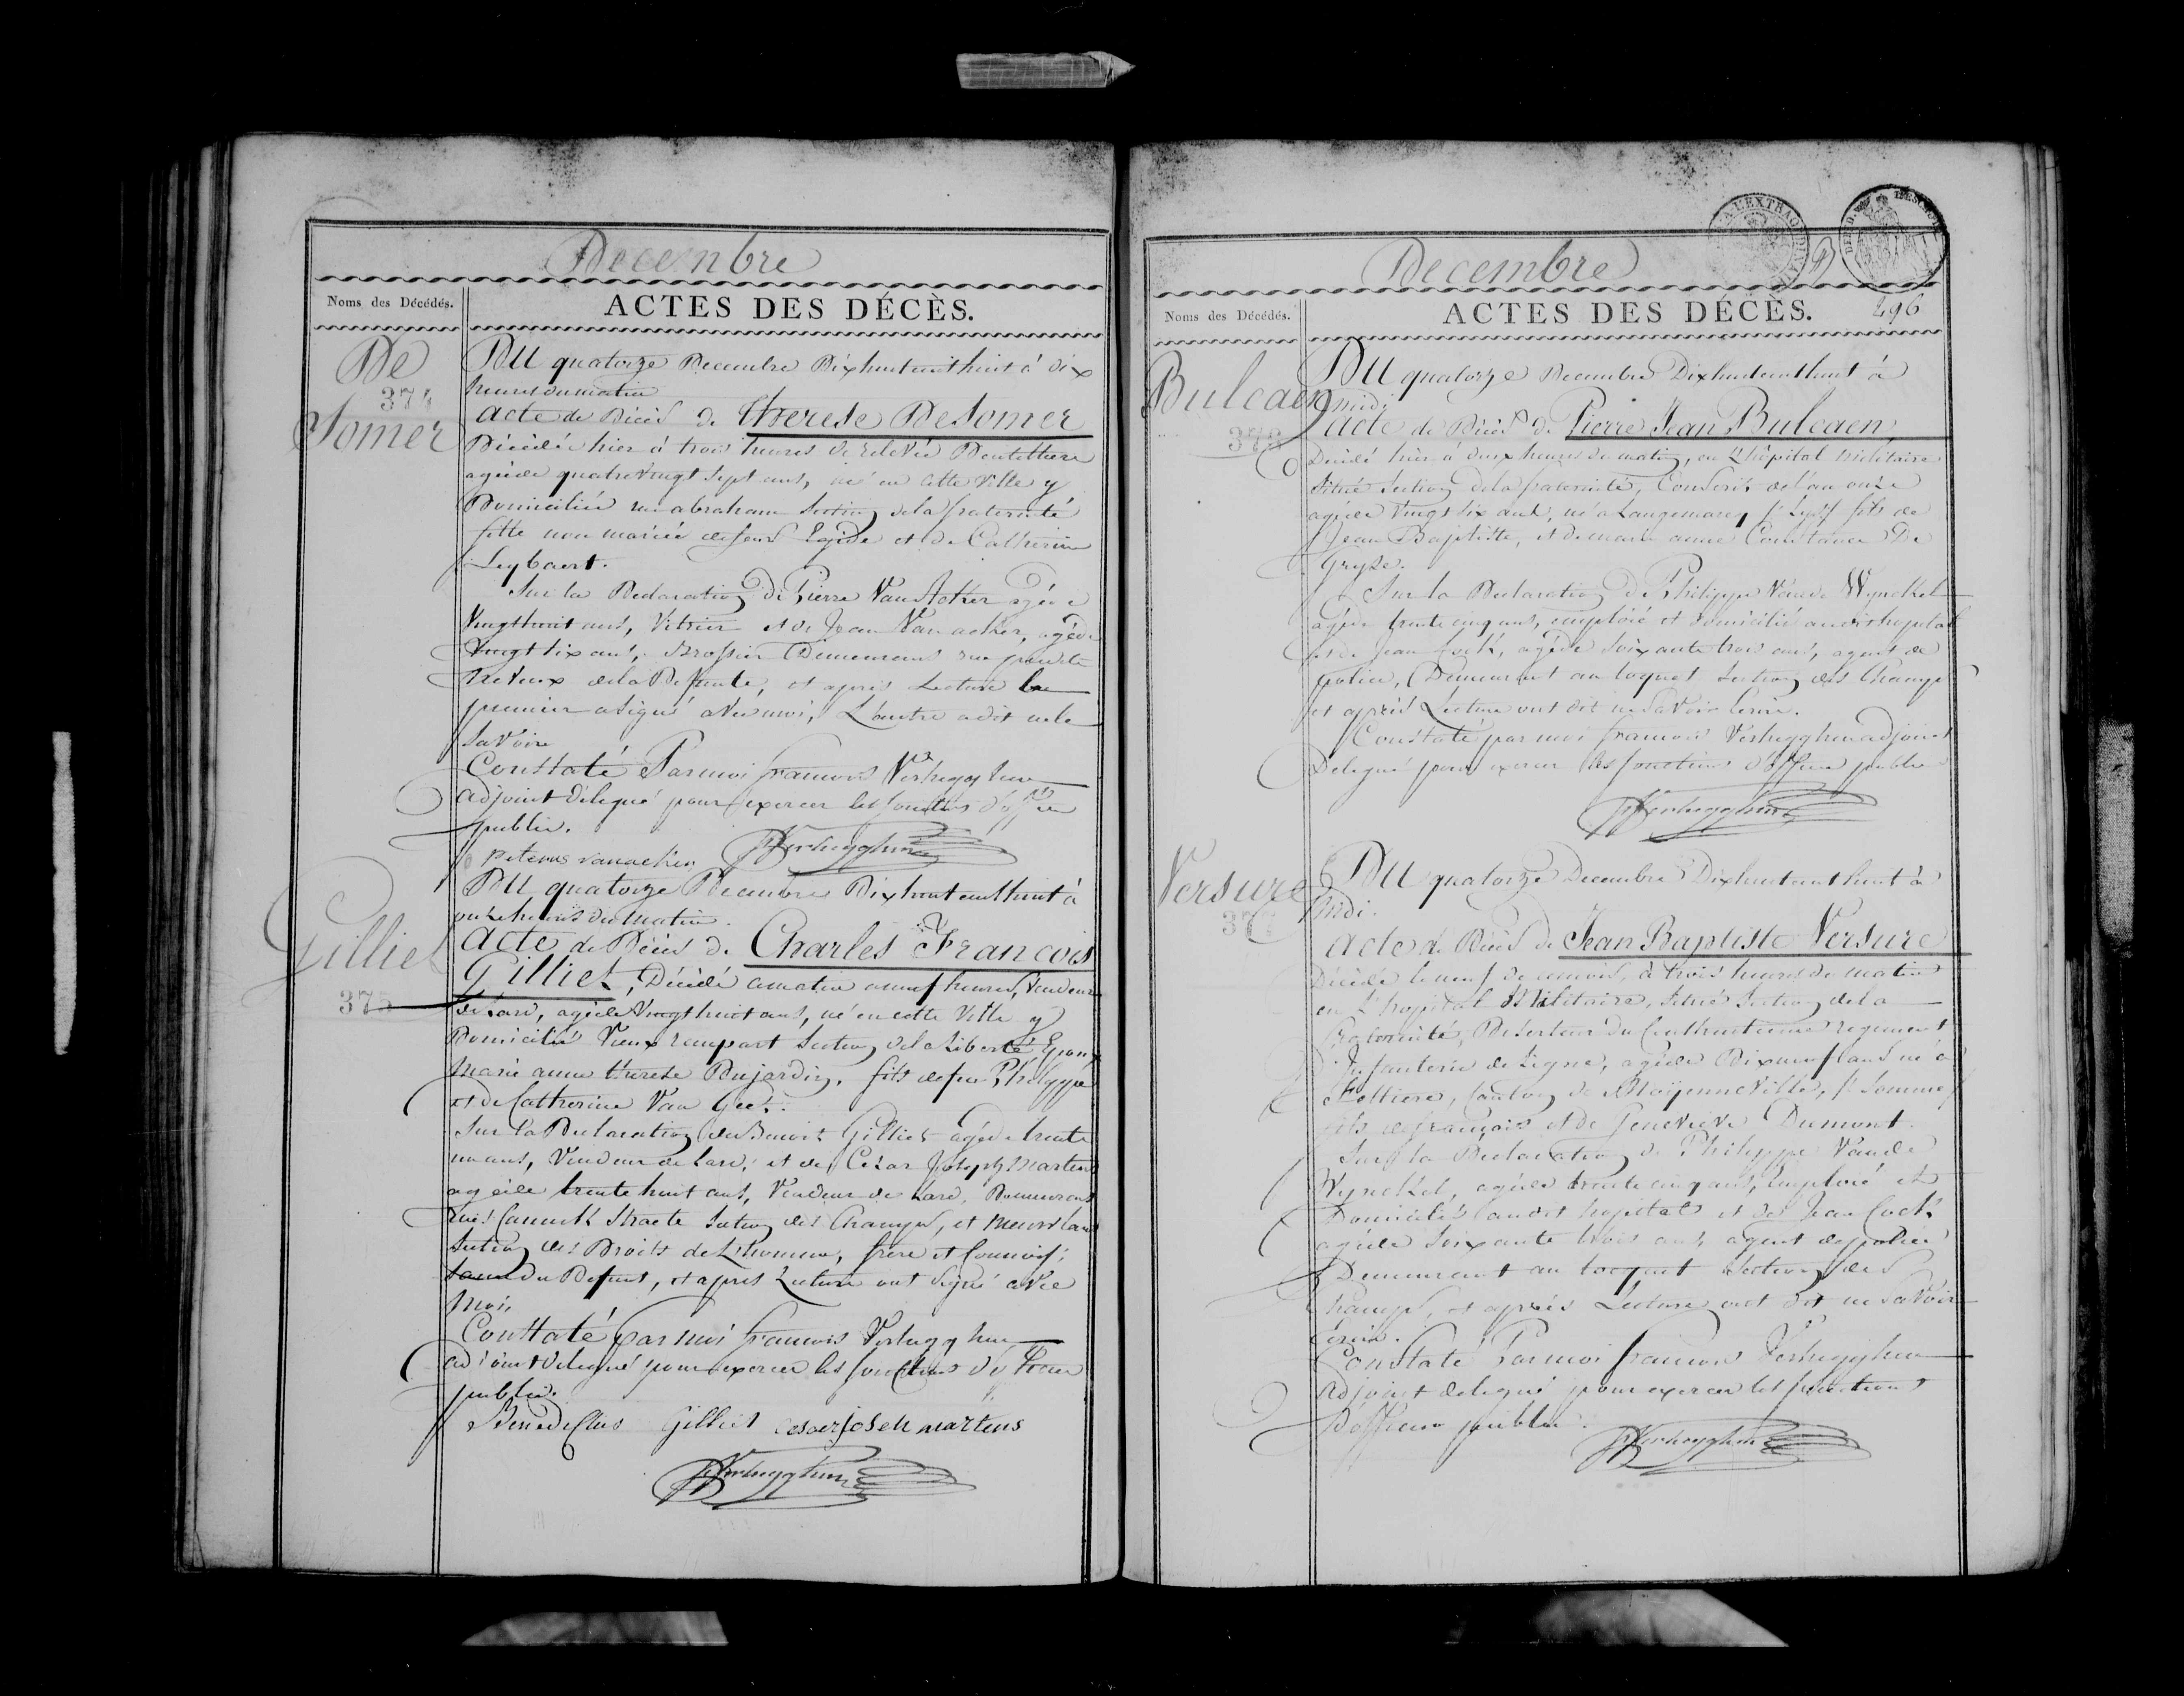 Decembre
Noms des Décédés.
ACTES DES DÉCÈS.
De
374
Somer
DU quatorze Decembre Dixhuitcenthuit à dix
heures du matin
acte de Décès de Therese De Somer
Décédée hier à trois heures de relevée Dentelliere
agée de quatrevingt sept ans, né en cette Ville y
Domiciliée rue abraham Section de la fraternité
fille non mariée de feus Egide et de Catherine
Leybaert.
Sur la Declaration de Pierre Van Acker agé de
Vingthuit ans, Vitrier et de Jean Van acker, agé de
Vingt six ans, Brossier Demeurans rue
Neveux de la Defunte, et après Lecture le
premier a signé avec moi, L'autre a dit ne le
savoir
Constaté Par moi francois Verhegghen
adjoint délegué pour exercer les fonctions d'officier
public.
petrus vanacker FVerhegghen
Gilliet
375
DU quatorze Decembre Dixhuitcenthuit à
onze heures du matin.
acte de Décès de Charles François
Gilliet, Décédé ce matin a neuf heures, Vendeur
de Lard, agé de Vingthuit ans, né en cette Ville y
Domicilié Vieux rempart Section de la Liberté Epoux
Marie anne therese Dujardin, fils de feu Philippe
et de Catherine Van Gee
Sur la Declaration de Benoit Gilliet agé de trente
un ans, Vendeur de Lard, et de César Joseph Martens
agé de trente huit ans, Vendeur de Lard, Demeurans
rues Straete Section des Champs, et
Section des Droits de L'homme, frère et
du Defunt, et apres Lecture ont signé avec
moi,
Constaté par moi francois Verhegghen
adjoint delegué pour exercer les fonctions d'officier
public.
Benedictus Gilliet cesar joseh martens
FVerhegghen
Decembre
496
Noms des Décédés.
ACTES DES DÉCÈS.
Bulcaen
376
DU quatorze Decembre Dixhuitcenthuit à
midi
acte de Décès de Pierre Jean Bulcaen
Décédé hier à deux heures du matin, en L'hôpital militaire
Situé Section de la fraternité, Conscrit de l'an onze
agé de Vingt six ans, né a Langemarcq /: Lys :/ fils de
Jean Baptiste, et de marie anne Constance De
Gryse.
Sur la Declaration de Philippe Vande Wynckel
agé de trente cinq ans, emploié et domicilié audit hopital
et de Jean Cock, agé de Soixante trois ans, agent de
police, Demeurant au toquet Section des Champs
et après Lecture ont dit ne savoir ecrire.
Constaté par moi francois Verhegghen adjoint
Delegué pour exercer les fonctions d'officier public
FVerhegghen
Versure
377
DU quatorze Decembre Dixhuitcenthuit à
midi.
acte de Décès de Jean Baptiste Versure
Décédé le neuf de ce mois, à trois heures du matin
en L'hopital Militaire, Situé Section de la
fraternité, Deserteur du regiment
Infanterie de Ligne, agé de Dixneuf ans né à
, Canton de Moyenneville, /: Somme :/
fils de françois et de Genevieve Dumont.
Sur la Declaration de Philippe Vande
Wynckel, agé de trente cinq ans, emploié et
Domicilié audit hopital et de Jean Cock
agé de Soixante trois ans, agent de police
Demeurant au toquet Section des
Champs, et après Lecture ont dit ne savoir
écrire.
Constaté Par moi francois Verhegghen
adjoint delegué pour exercer les fonctions
D'officier public.
FVerhegghen